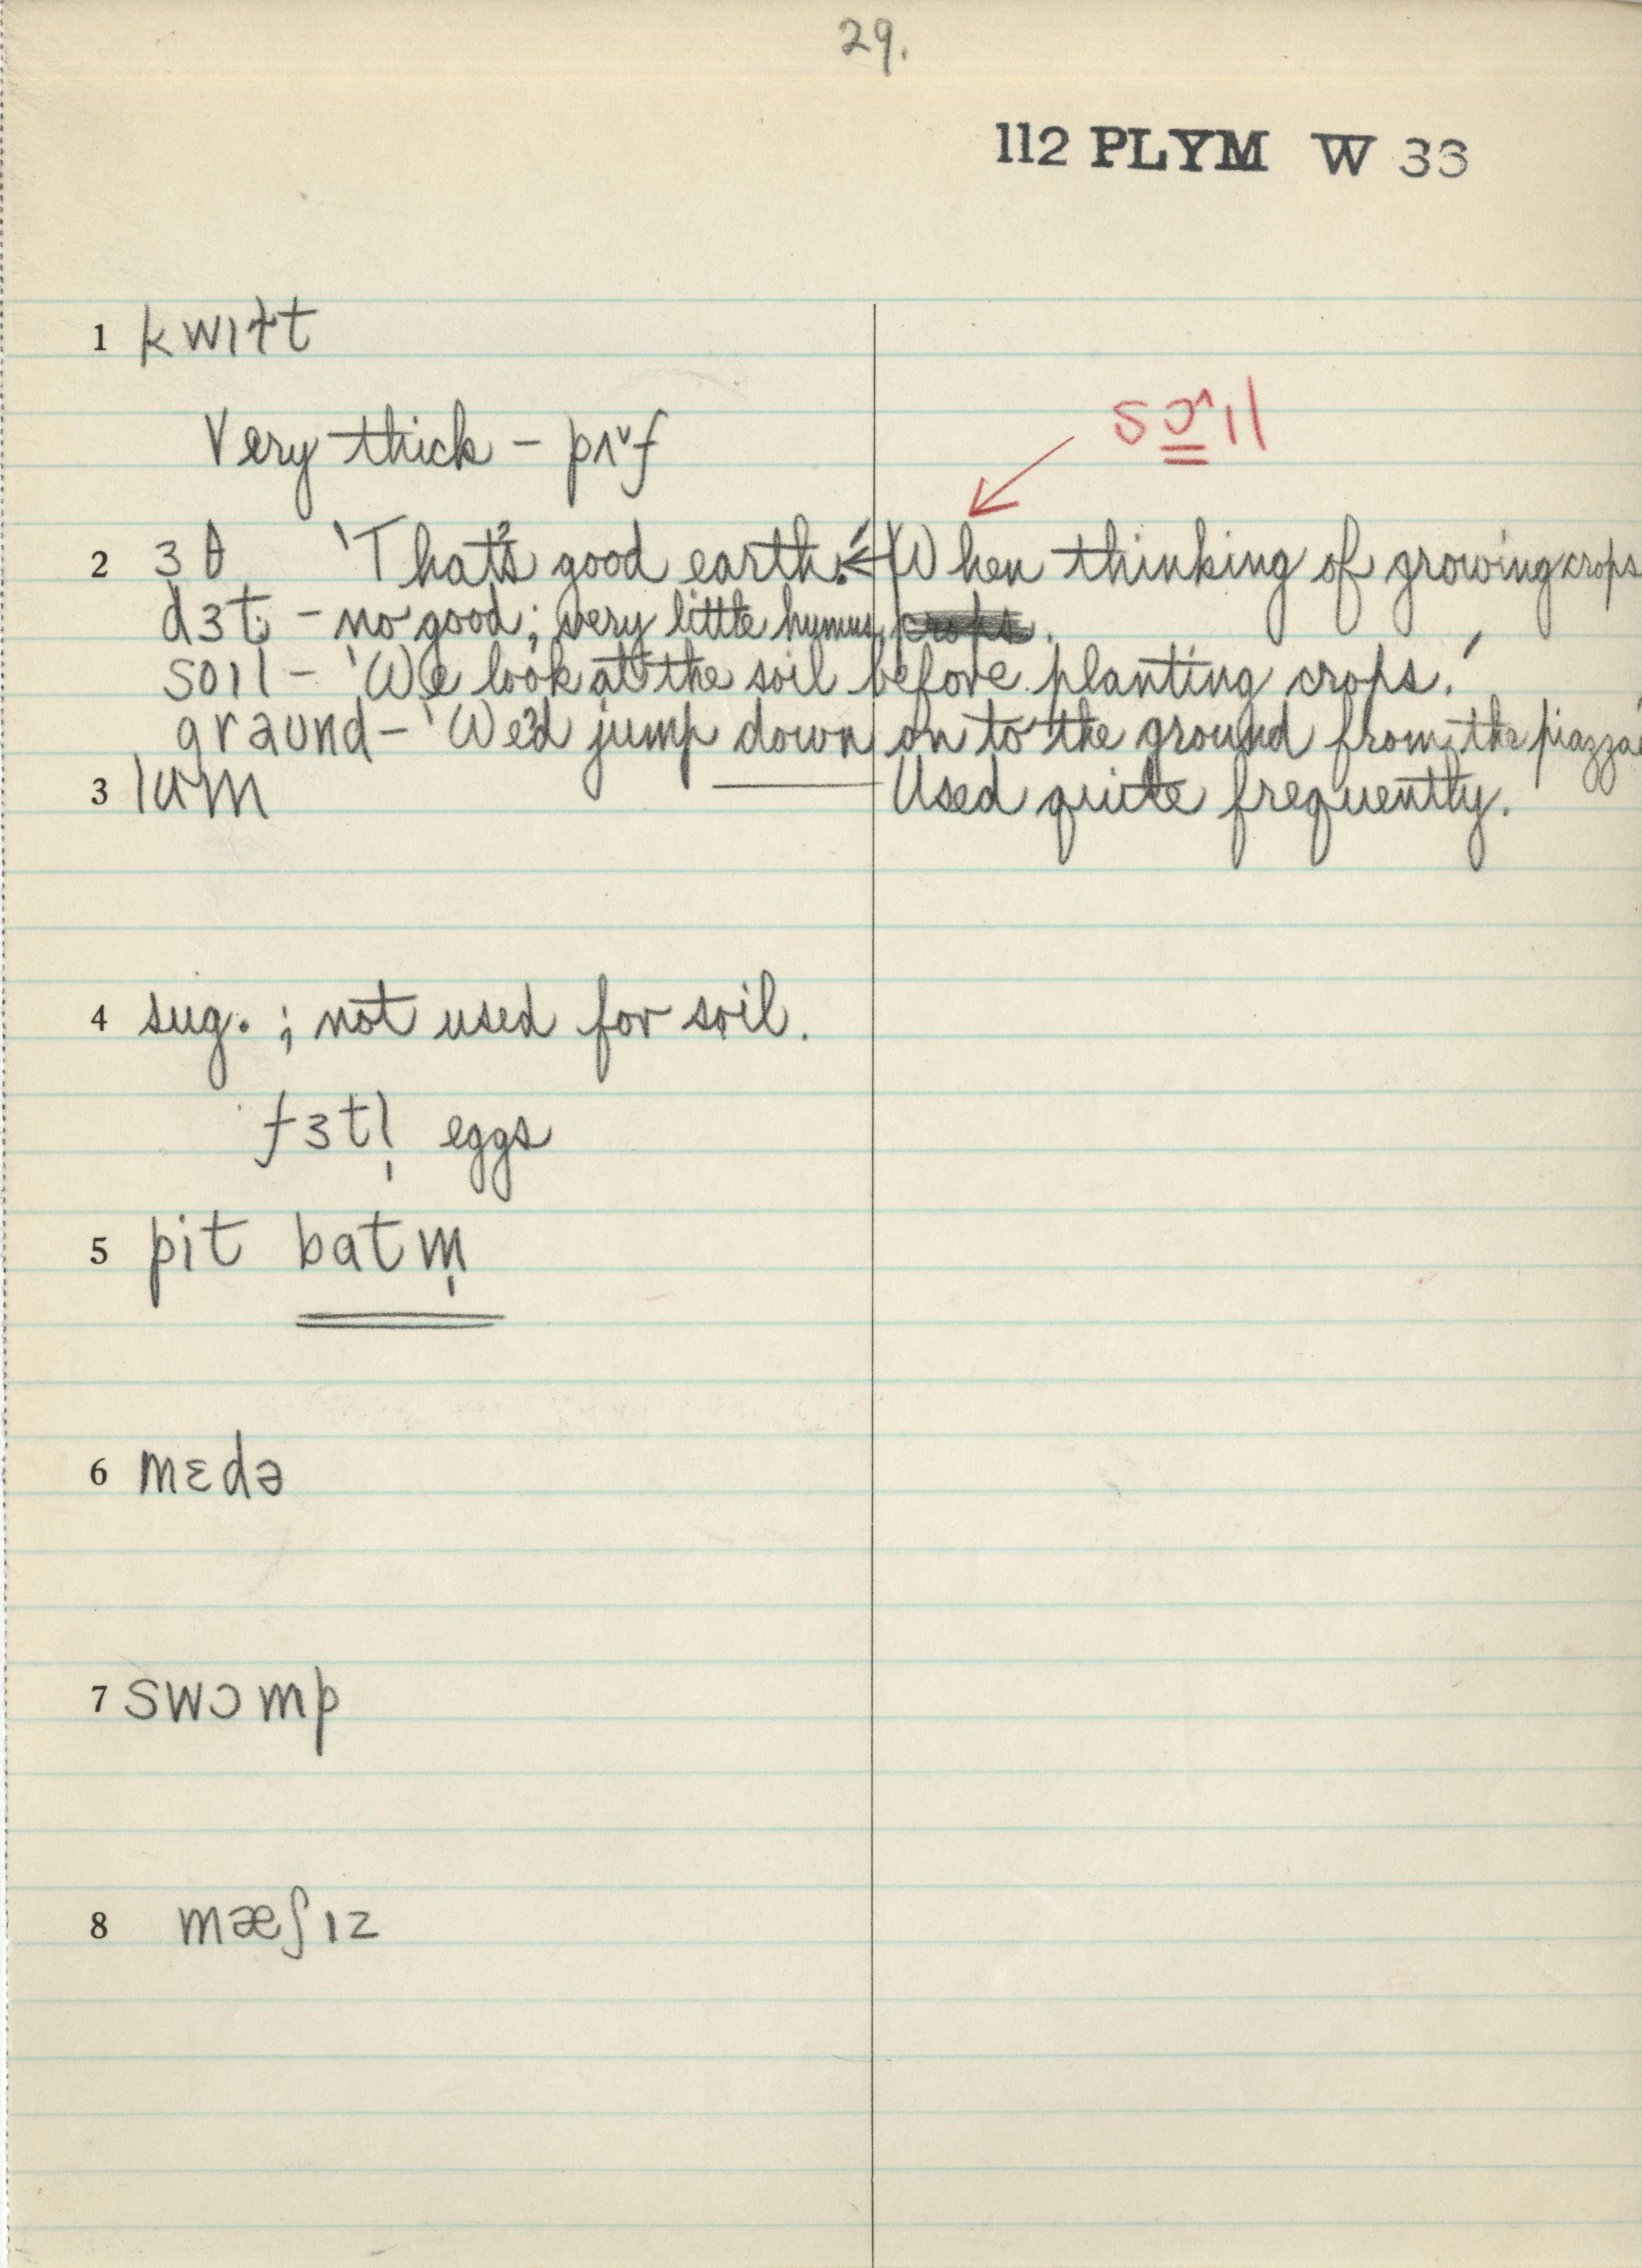 29.
112 PLYM W 33
1 kwɪɫt
Very thick – pʌ˅f
sɔ^ɪl
2 ɜθ 'That's good earth.' ← When thinking of growing crops
dɜt – no good; very little humus.
soɪl – 'We look at the soil before planting crops.'
graʊnd – 'We'd jump down on to the ground from the piazza'
3 lʊm — Used quite frequently.
4 sug. ; not used for soil.
fɜtl̩ eggs
5 pit batm̩
6 mɛdə
7 swɔmp
8 mæʃɪz